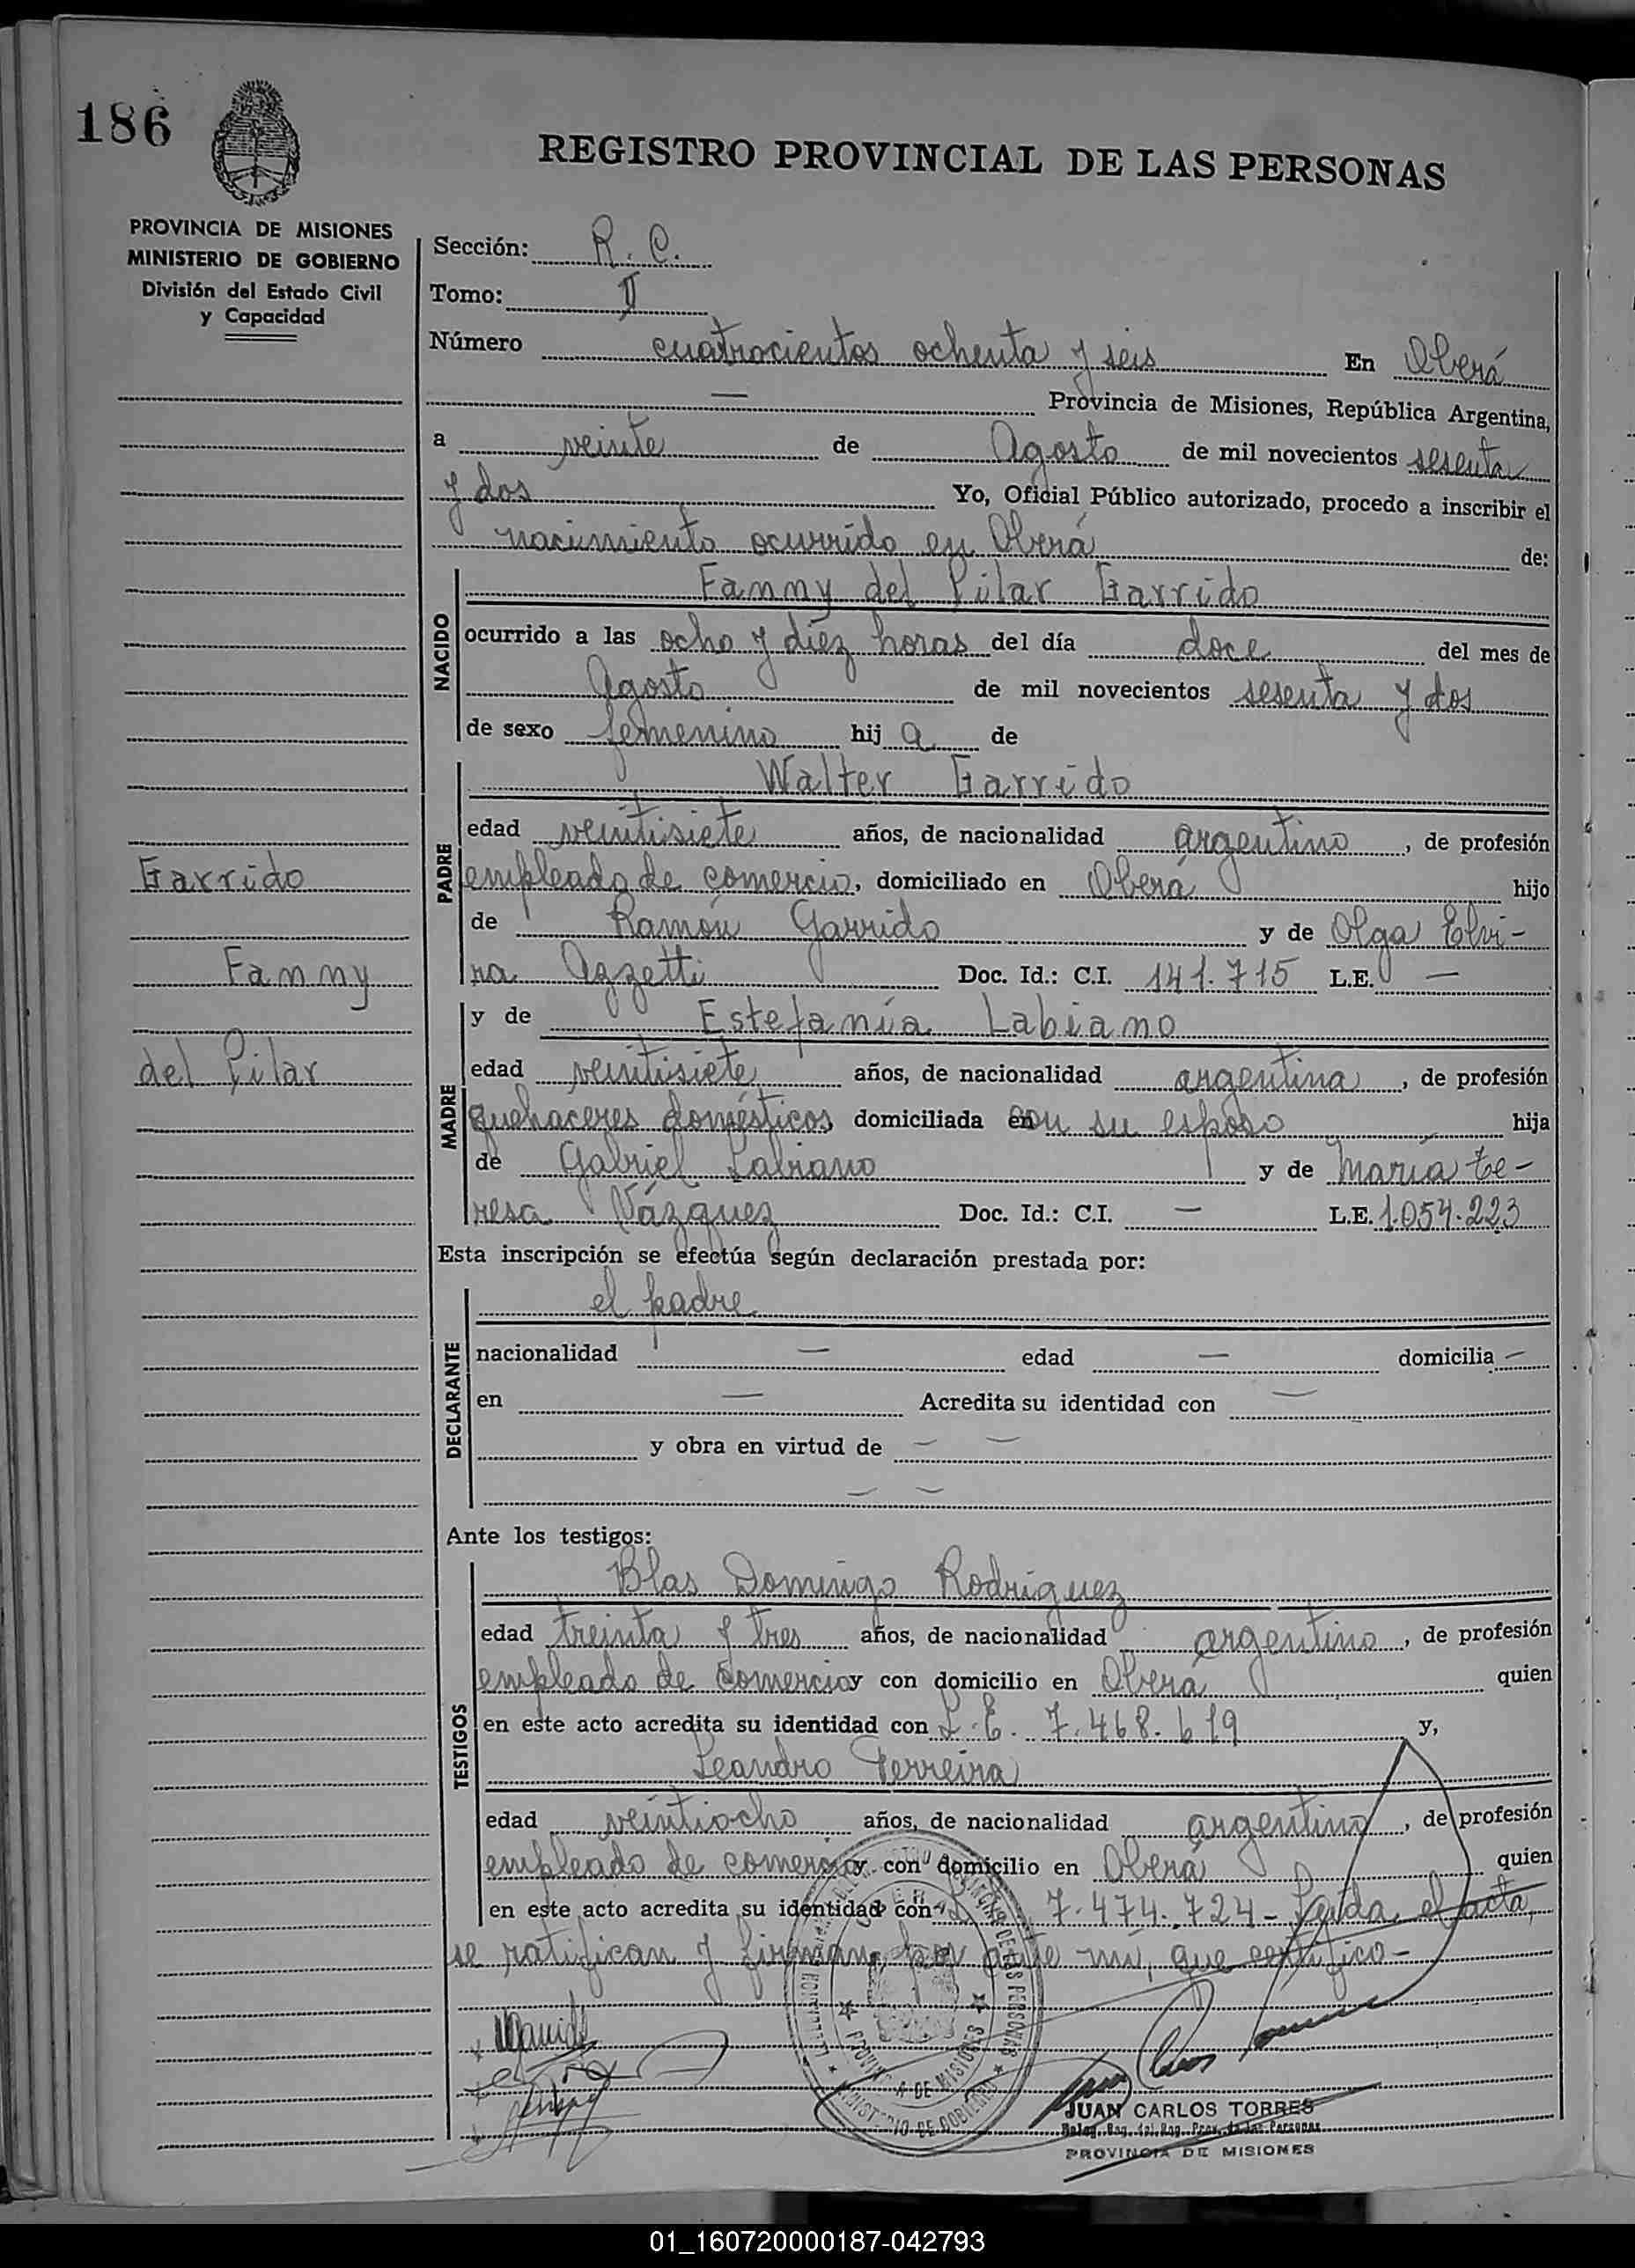 186
REGISTRO PROVINCIAL DE LAS PERSONAS
PROVINCIA DE MISIONES
MINISTERIO DE GOBIERNO
División del Estado Civil
y Capacidad
Sección: R. C.
Tomo: II
Número cuatrocientos ochenta y seis En Oberá
— Provincia de Misiones, República Argentina,
a veinte de Agosto de mil novecientos sesenta
y dos Yo, Oficial Público autorizado, procedo a inscribir el
nacimiento ocurrido en Oberá de:
NACIDO
Fanny del Pilar Garrido
ocurrido a las ocho y diez horas del día doce del mes de
Agosto de mil novecientos sesenta y dos
de sexo femenino hij a de
PADRE
Walter Garrido
edad veintisiete años, de nacionalidad argentino, de profesión
empleado de comercio, domiciliado en Oberá hijo
de Ramón Garrido y de Olga Elvi-
ra Azzetti Doc. Id.: C.I. 141.715 L.E. —
MADRE
y de Estefanía Labiano
edad veintisiete años, de nacionalidad argentina, de profesión
quehaceres domésticos, domiciliada en con su esposo hija
de Gabriel Labiano y de María Te-
resa Vázquez Doc. Id.: C.I. — L.E. 1.054.223
Garrido
Fanny
del Pilar
Esta inscripción se efectúa según declaración prestada por:
DECLARANTE
el padre
nacionalidad — edad — domicilia —
en — Acredita su identidad con —
y obra en virtud de — —
— —
Ante los testigos:
TESTIGOS
Blas Domingo Rodriguez
edad treinta y tres años, de nacionalidad argentino, de profesión
empleado de comercio y con domicilio en Oberá quien
en este acto acredita su identidad con L. E. 7.468.619 y,
Leandro Ferreira
edad veintiocho años, de nacionalidad argentino, de profesión
empleado de comercio y con domicilio en Oberá quien
en este acto acredita su identidad con L. 7.474.724 - Leida el acta,
se ratifican y firman, por ante mí, que certifico -
PROVINCIA DE MISIONES
MINISTERIO DE GOBIERNO
JUAN CARLOS TORRES
PROVINCIA DE MISIONES
01_160720000187-042793